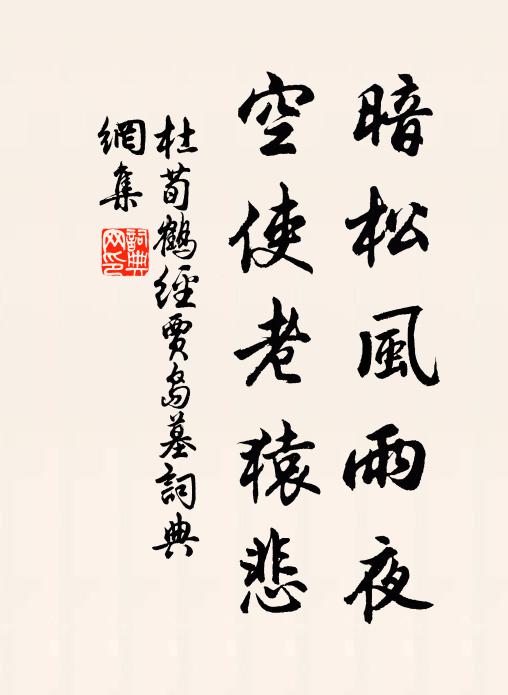 暗松風雨夜
空使老猿悲
杜荀鶴經賈島墓詞典
網集
詞典
网印